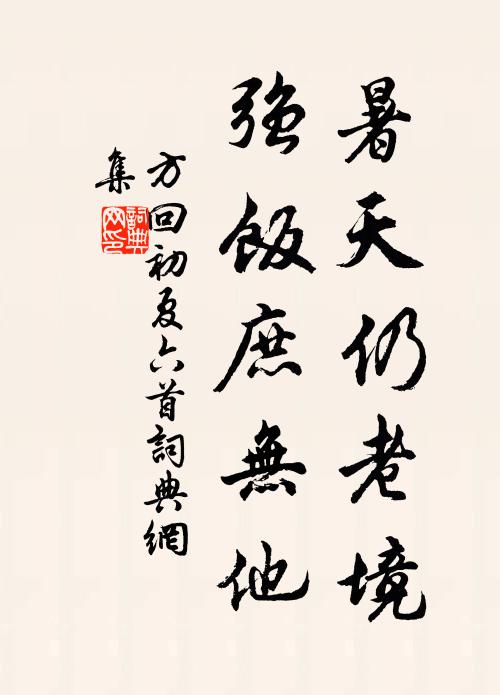 暑天仍老境
強飯庶無他
方回初夏六首詞典網
集
詞典
网印